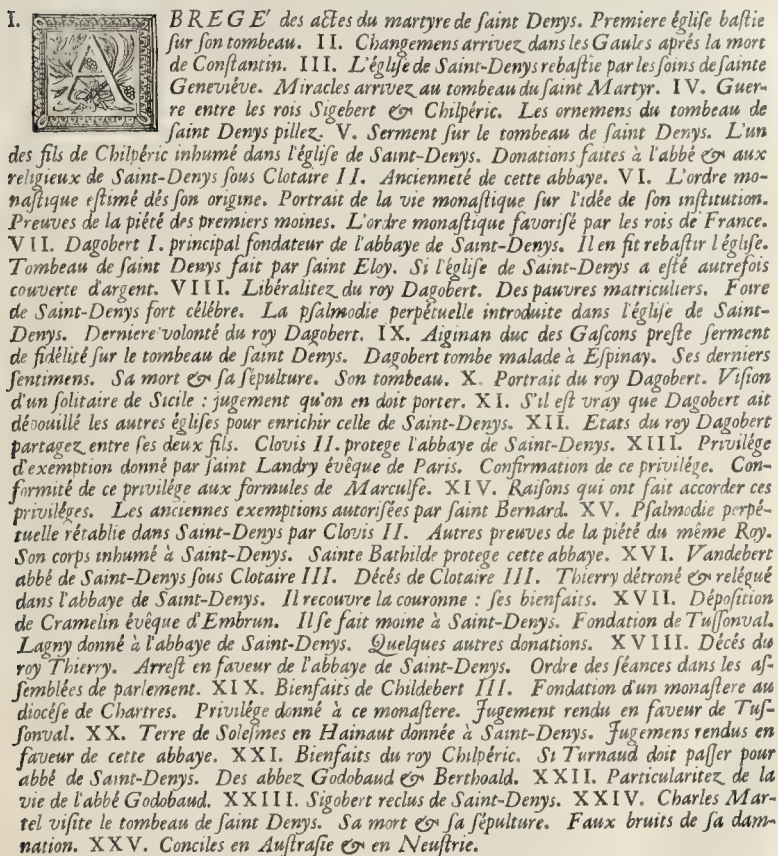 I. ABREGE' des actes du martyre de saint Denys. Premiere église bastie
sur son tombeau. II. Changemens arrivez dans les Gaules aprés la mort
de Constantin. III. L'église de Saint-Denys rebastie par les soins de sainte
Geneviéve. Miracles arrivez au tombeau du saint Martyr. IV. Guer-
re entre les rois Sigebert & Chilpéric. Les ornemens du tombeau de
saint Denys pillez. V. Serment sur le tombeau de saint Denys. L'un
des fils de Chilpéric inhumé dans l'église de Saint-Denys. Donations faites à l'abbé & aux
religieux de Saint-Denys sous Clotaire II. Ancienneté de cette abbaye. VI. L'ordre mo-
nastique estimé dés son origine. Portrait de la vie monastique sur l'idée de son institution.
Preuves de la piété des premiers moines. L'ordre monastique favorisé par les rois de France.
VII. Dagobert I. principal fondateur de l'abbaye de Saint-Denys. Il en fit rebastir l'église.
Tombeau de saint Denys fait par saint Eloy. Si l'église de Saint-Denys a esté autrefois
couverte d'argent. VIII. Libéralitez du roy Dagobert. Des pauvres matriculiers. Foire
de Saint-Denys fort célébre. La psalmodie perpétuelle introduite dans l'église de Saint-
Denys. Derniere volonté du roy Dagobert. IX. Aiginan duc des Gascons preste serment
de fidélité sur le tombeau de saint Denys. Dagobert tombe malade à Espinay. Ses derniers
sentimens. Sa mort & sa sépulture. Son tombeau. X. Portrait du roy Dagobert. Vision
d'un solitaire de Sicile : jugement qu'on en doit porter. XI. S'il est vray que Dagobert ait
dépouillé les autres églises pour enrichir celle de Saint-Denys. XII. Etats du roy Dagobert
partagez entre ses deux fils. Clovis II. protege l'abbaye de Saint-Denys. XIII. Privilége
d'exemption donné par saint Landry évêque de Paris. Confirmation de ce privilége. Con-
formité de ce privilége aux formules de Marculfe. XIV. Raisons qui ont fait accorder ces
priviléges. Les anciennes exemptions autorisées par saint Bernard. XV. Psalmodie perpé-
tuelle rétablie dans Saint-Denys par Clovis II. Autres preuves de la piété du même Roy.
Son corps inhumé à Saint-Denys. Sainte Bathilde protege cette abbaye. XVI. Vandebert
abbé de Saint-Denys sous Clotaire III. Décés de Clotaire III. Thierry détroné & relégué
dans l'abbaye de Saint-Denys. Il recouvre la couronne : ses bienfaits. XVII. Déposition
de Cramelin évêque d'Embrun. Il se fait moine à Saint-Denys. Fondation de Tussonval.
Lagny donné à l'abbaye de Saint-Denys. Quelques autres donations. XVIII. Décés du
roy Thierry. Arrest en faveur de l'abbaye de Saint-Denys. Ordre des séances dans les as-
semblées de parlement. XIX. Bienfaits de Childebert III. Fondation d'un monastere au
diocése de Chartres. Privilége donné à ce monastere. Jugement rendu en faveur de Tus-
sonval. XX. Terre de Solesmes en Hainaut donnée à Saint-Denys. Jugemens rendus en
faveur de cette abbaye. XXI. Bienfaits du roy Chilpéric. Si Turnaud doit passer pour
abbé de Saint-Denys. Des abbez Godobaud & Berthoald. XXII. Particularitez de la
vie de l'abbé Godobaud. XXIII. Sigobert reclus de Saint-Denys. XXIV. Charles Mar-
tel visite le tombeau de saint Denys. Sa mort & sa sépulture. Faux bruits de sa dam-
nation. XXV. Conciles en Austrasie & en Neustrie.